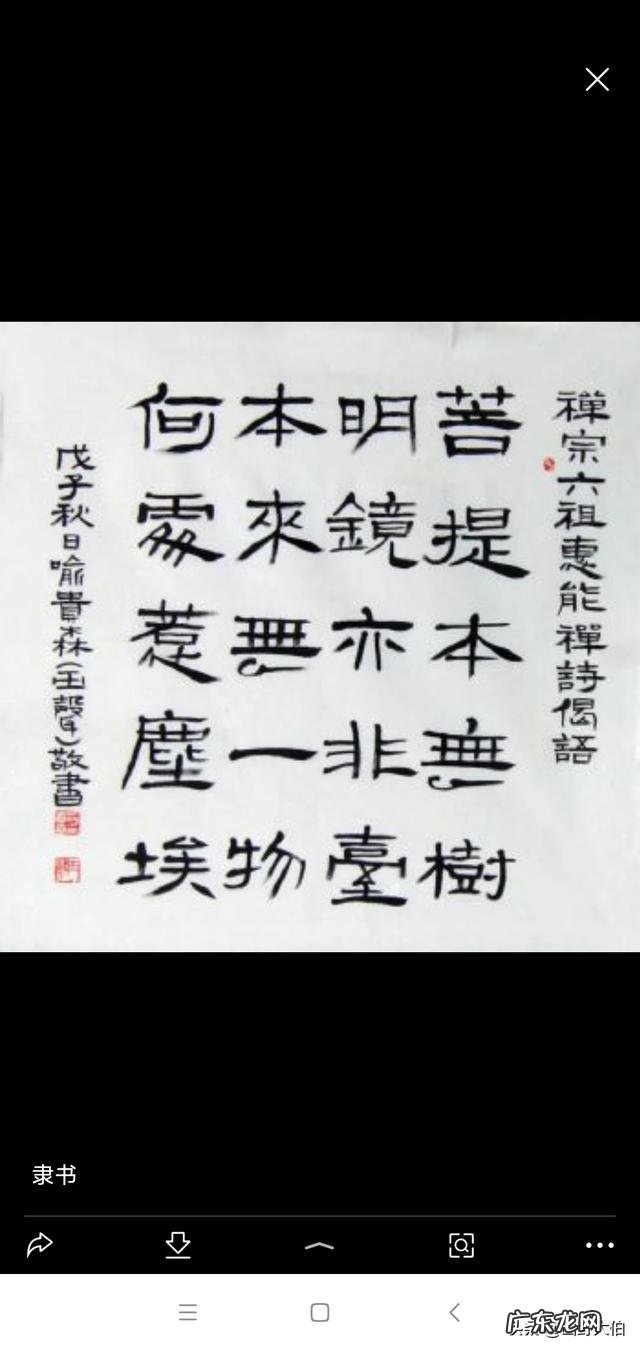 禪宗六祖惠能禪詩偈語
菩提本無樹
明鏡亦非臺
本來無一物
何處惹塵埃
戊子秋日喻貴森(玉聲)敬書
隶书
广东龙网